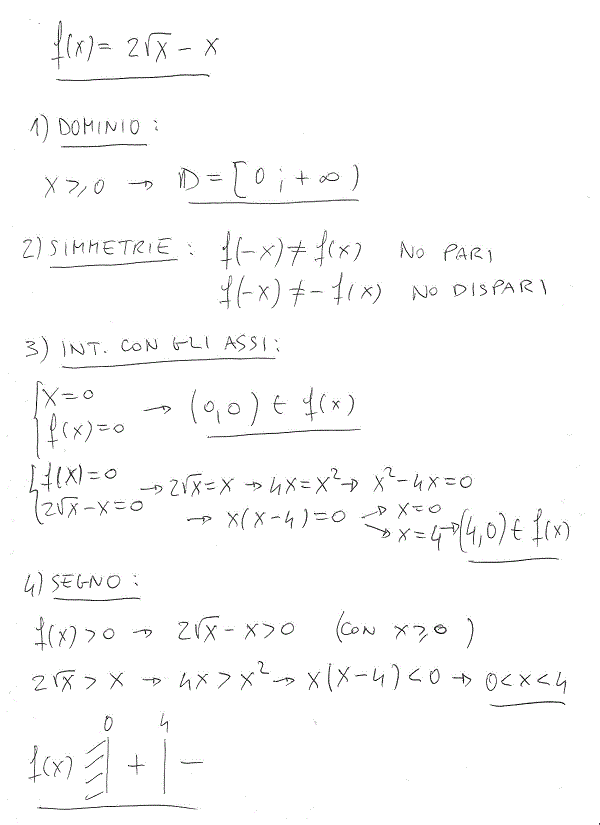 f(x) = 2√x - x
1) DOMINIO :
x ⩾ 0 → D = [0 ; +∞)
2) SIMMETRIE : f(-x) ≠ f(x) NO PARI
f(-x) ≠ - f(x) NO DISPARI
3) INT. CON GLI ASSI :
{ x=0
{ f(x)=0 → (0,0) ∈ f(x)
{ f(x)=0
{ 2√x - x=0 → 2√x = x → 4x = x² → x² - 4x = 0
→ x(x-4)=0 → x=0
→ x=4 → (4,0) ∈ f(x)
4) SEGNO :
f(x) > 0 → 2√x - x > 0 (CON x ⩾ 0)
2√x > x → 4x > x² → x(x-4) < 0 → 0 < x < 4
0 4
f(x) + -